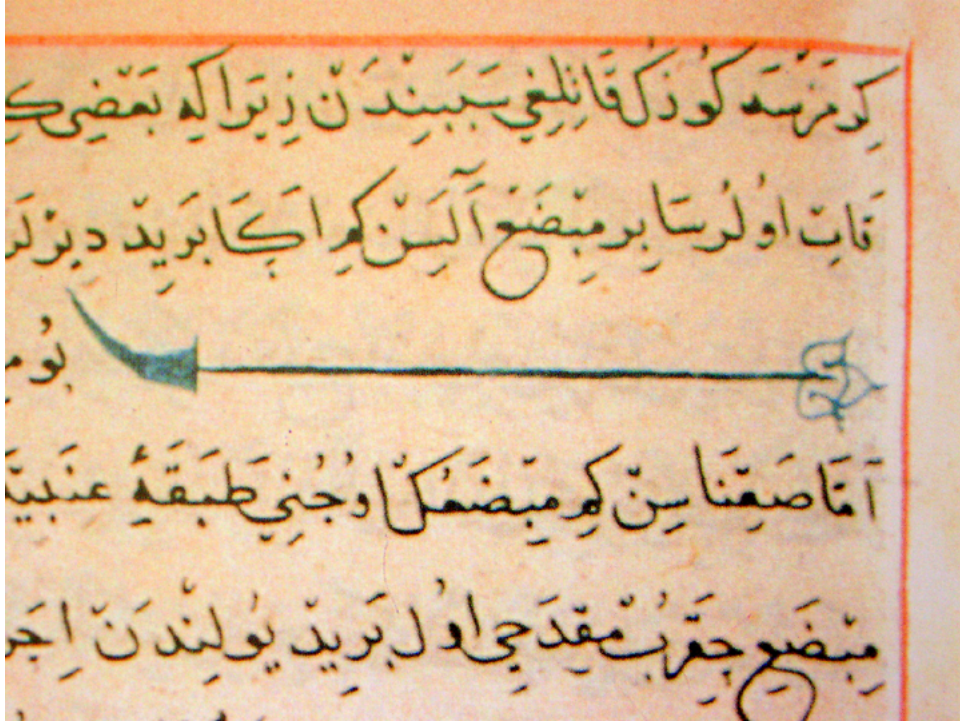 كِرمَزسَه كُوزكْ قَاتِلِغِي سَبَبِنْدَنْ زِيرَا كِه بَعْضِى
قَاتِ اوُلُرسَا بِر مِبْضَعْ آلَسِنْ كِم اكَا بَرِيدْ دِيرْلَر
بُو
اَمَّا صَقِنَاسِنْ كِم مِبْضَعُكْ اوُجُنِي طَبَقَهٔ عنَبِيَّه
مِبْضَعِ جِقَرُبْ مِقْدَحِي اوُل بَرِيدْ يوُلِنْدَنْ